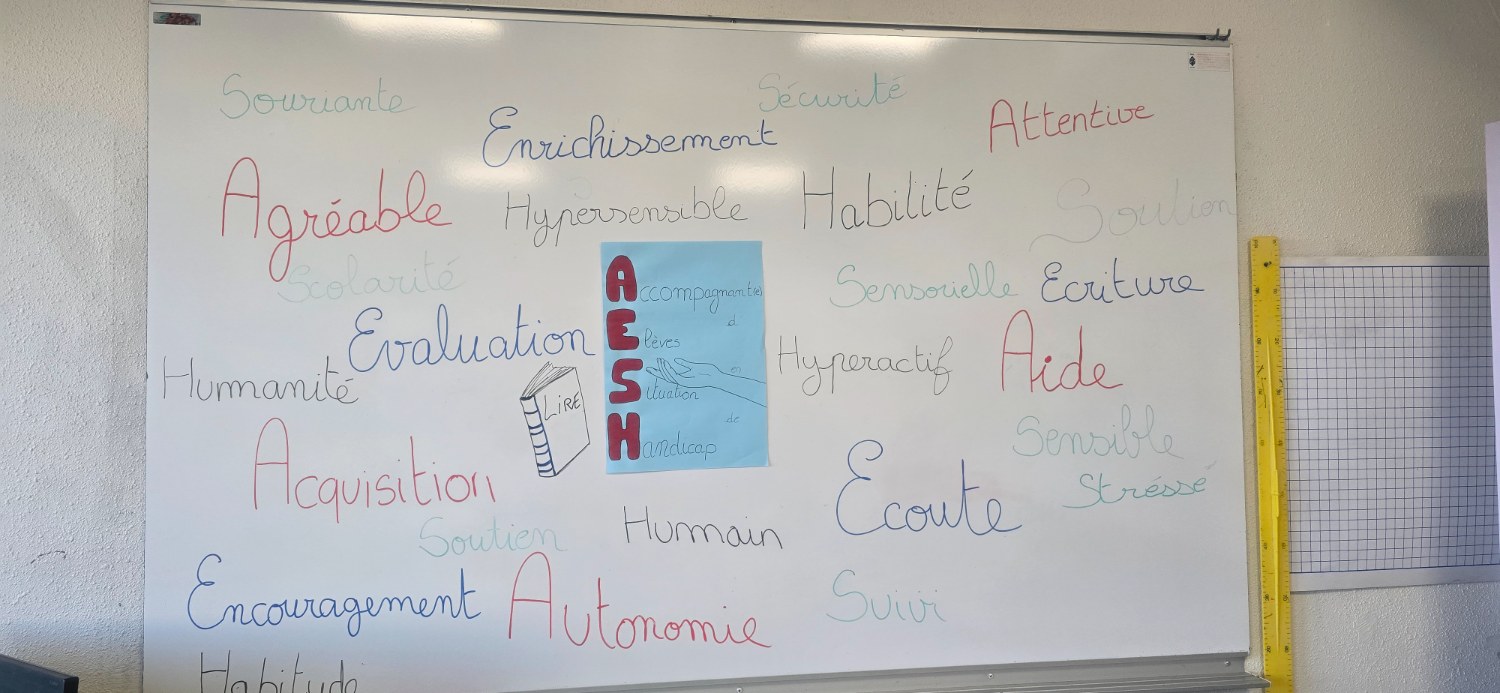 Souriante
Sécurité
Attentive
Enrichissement
Agréable
Hypersensible
Habilité
Scolarité
Sensorielle
Ecriture
Accompagnant(e)
d
Elèves
en
Situation
de
Handicap
Evaluation
Humanité
LIRE
Hyperactif
Aide
Sensible
Stréssé
Acquisition
Ecoute
Soutien
Humain
Encouragement
Autonomie
Suivi
Habitude